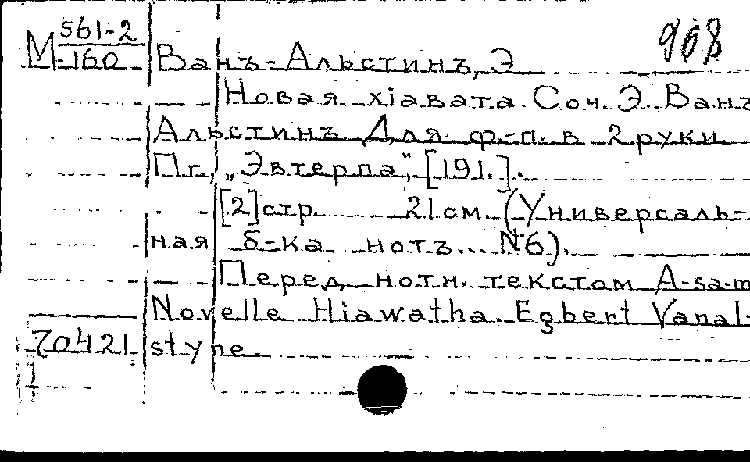 М 561-2
160
968
Ванъ-Альстинъ, Э
Новая хіавата. Соч. Э. Ванъ
Альстинъ Для ф-п. в 2 руки
Пг., „Эвтерпа", [191.].
[2]стр. 21см. (Универсаль-
ная б-ка нотъ... №6).
Перед нотн. текстом A-sa-m
Novelle Hiawatha. Egbert Vanal-
styne.
70421